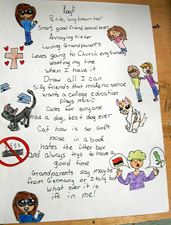 Kayt
Petite, long brown hair
Smart, good friend, animal lover
Annoying sister
Loving Grandparents
Loves going to Church every sunday
wasting my time
when I have it
Draw all I can
Silly friends that make no sense
wants a college education
plays music
Cares for everyone
has a dog, best dog ever
Cat how is so soft
nose in a book
hates the litter box
and always trys to have a
good time
Grandparents say maybe
from Germany or Holy land
what ever it is
its in me!